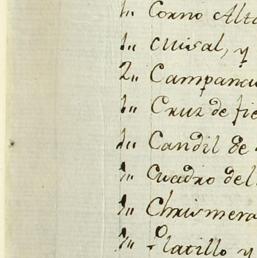 1,, Corno Alta
1,, Misal, y
2,, Campana
1,, Cruz de fie
1,, Candil de
1,, Cuadro del
1,, Chrismera
1,, Platillo y